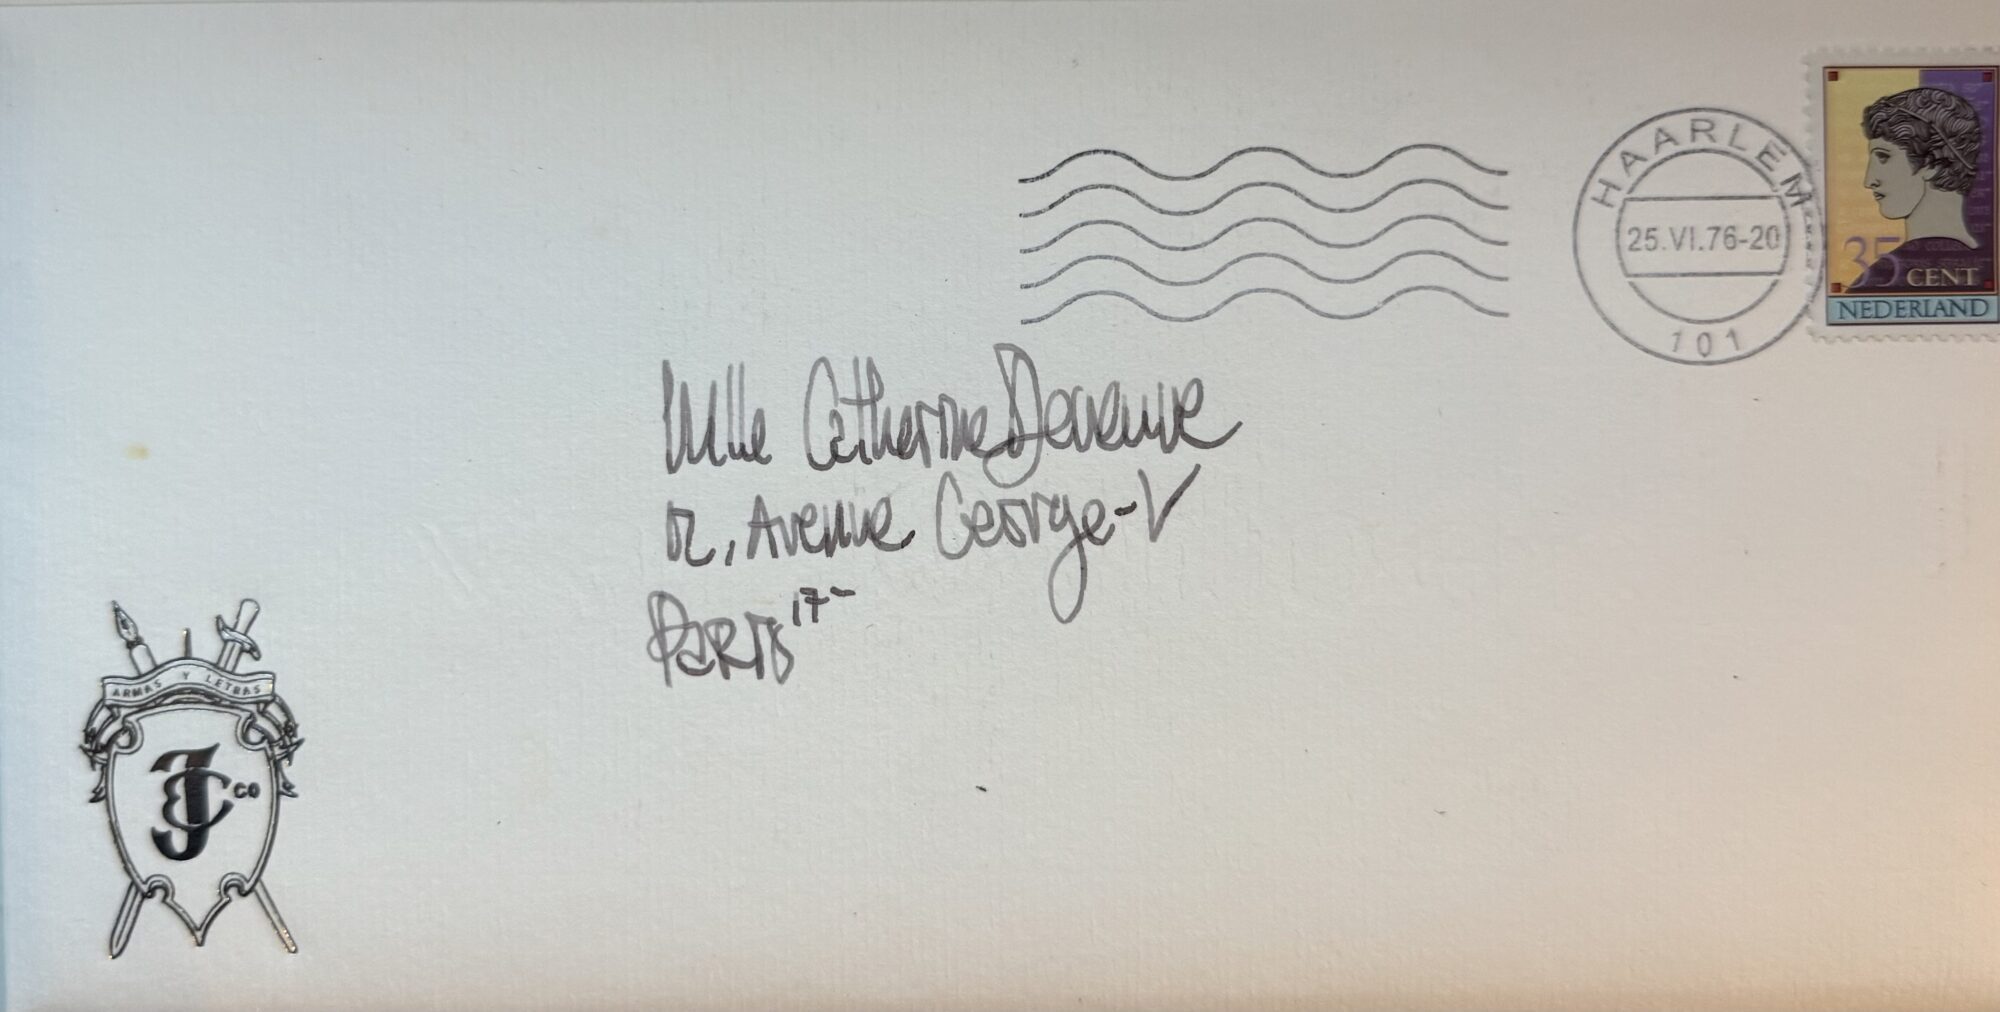 HAARLEM
25.VI.76-20
101
35
CENT
NEDERLAND
Mlle Catherine Deneuve
Avenue George-V
Paris 17e
ARMAS Y LETRAS
JC co